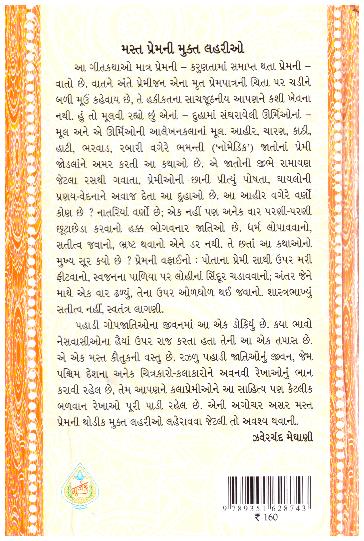 મસ્ત પ્રેમની મુક્ત લહરીઓ
આ ગીતકથાઓ માત્ર પ્રેમની – કરુણતામાં સમાપ્ત થતા પ્રેમની –
વાતો છે. વાતને અંતે પ્રેમીજન એના મૃત પ્રેમપાત્રની ચિતા પર ચડીને
બળી મૂઉં કહેવાય છે. તે હકીકતના સાચજૂઠનીય આપણને કશી ખેવના
નથી. હું તો મૂલવી રહ્યો છું એનાં – દુહામાં સંઘરાયેલી ઊર્મિઓનાં –
મૂલ અને એ ઊર્મિઓની આલેખનકલાનાં મૂલ. આહીર, ચારણ, કાઠી,
હાટી, ભરવાડ, રબારી વગેરે ભમન્તી ('નોમેડિક') જાતોનાં પ્રેમી
જોડલાંને અમર કરતી આ કથાઓ છે. એ જાતોની જીભે રામાયણ
જેટલા રસથી ગવાતા, પ્રેમીઓની છાની પ્રીત્યું પોષતા, ઘાયલોની
પ્રણય-વેદનાને અવાજ દેતા આ દુહાઓ છે. આ આહીર વગેરે વર્ણો
કોણ છે ? નાતરિયાં વર્ણો છે; એક નહીં પણ અનેક વાર પરણી-પરણી
છૂટાછેડા કરવાનો હક્ક ભોગવનાર જાતિઓ છે. ધર્મ લોપાવવાનો,
સતીત્વ જવાનો, ભ્રષ્ટ થવાનો એને ડર નથી. તે છતાં આ કથાઓનો
મુખ્ય સૂર ક્યો છે ? પ્રેમની વફાઈનો : પોતાના પ્રેમી સાથી ઉપર મરી
ફીટવાનો, સ્વજનના પાળિયા પર લોહીનાં સિંદૂર ચડાવવાનો; અંતર જેને
માથે એક વાર ઢળ્યું, તેના ઉપર ઓળઘોળ થઈ જવાનો. શાસ્ત્રભાખ્યું
સતીત્વ નહીં, સ્વતંત્ર લાગણી.
પહાડી ગોપજાતિઓના જીવનમાં આ એક ડોકિયું છે. કયા ભાવો
નેસવાસીઓના હૈયાં ઉપર રાજ કરતા હતા તેની આ એક તપાસ છે.
એ એક મસ્ત કૌતુકની વસ્તુ છે. રઝળુ પહાડી જાતિઓનું જીવન, જેમ
પશ્ચિમ દેશના અનેક ચિત્રકારો-કલાકારોને અવનવી રેખાઓનું ભાન
કરાવી રહેલ છે, તેમ આપણને કલાપ્રેમીઓને આ સાહિત્ય પણ કેટલીક
બળવાન રેખાઓ પૂરી પાડી રહેલ છે. એની અગોચર અસર મસ્ત
પ્રેમની થોડીક મુક્ત લહરીઓ લહેરાવવા જેટલી તો અવશ્ય થવાની.
ઝવેરચંદ મેઘાણી
9 789351 628743
₹ 160